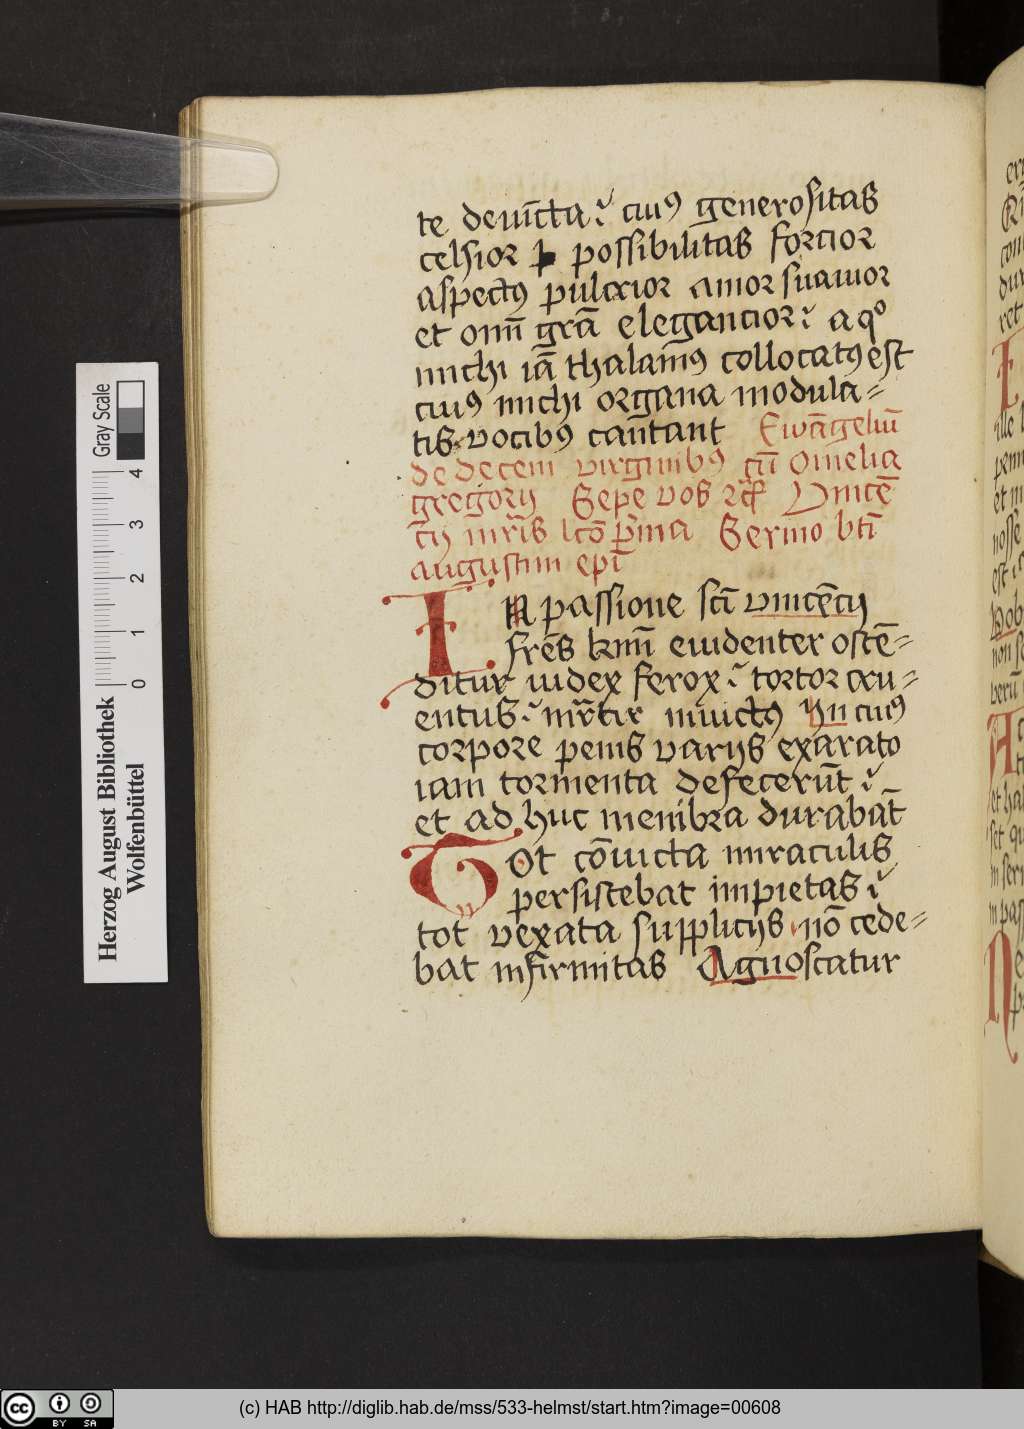 te deuīcta cuiꝰ generositas
celsior possibilitas forcior
aspectꝰ pulcrior amor suauior
et omī grā elegancior a qͦ
michi iā thalamꝰ collocatꝰ est
cuiꝰ michi organa modula=
tis vocibꝰ cantant Ewāgeliū
de decem virginibꝰ cū Omelia
gregorij Sepe vos Vincē
cij mr̄is lcō p̄ma Sermo bt̄i
augustini epī
IN passione scī vincēcij
fr̄es kmī euidenter ostē=
ditur iudex ferox tortor cru=
entus mr̄tir inuictꝰ In cuiꝰ
corpore penis varijs exarato
iam tormenta defecerūt
et ad huc membra durabāt
Tot cōuicta miraculis
persistebat impietas
tot vexata supplicijs nō cede=
bat infirmitas Agnoscatur
Herzog August Bibliothek
Wolfenbüttel
Gray Scale
0 1 2 3 4
cc BY SA
(c) HAB http://diglib.hab.de/mss/533-helmst/start.htm?image=00608